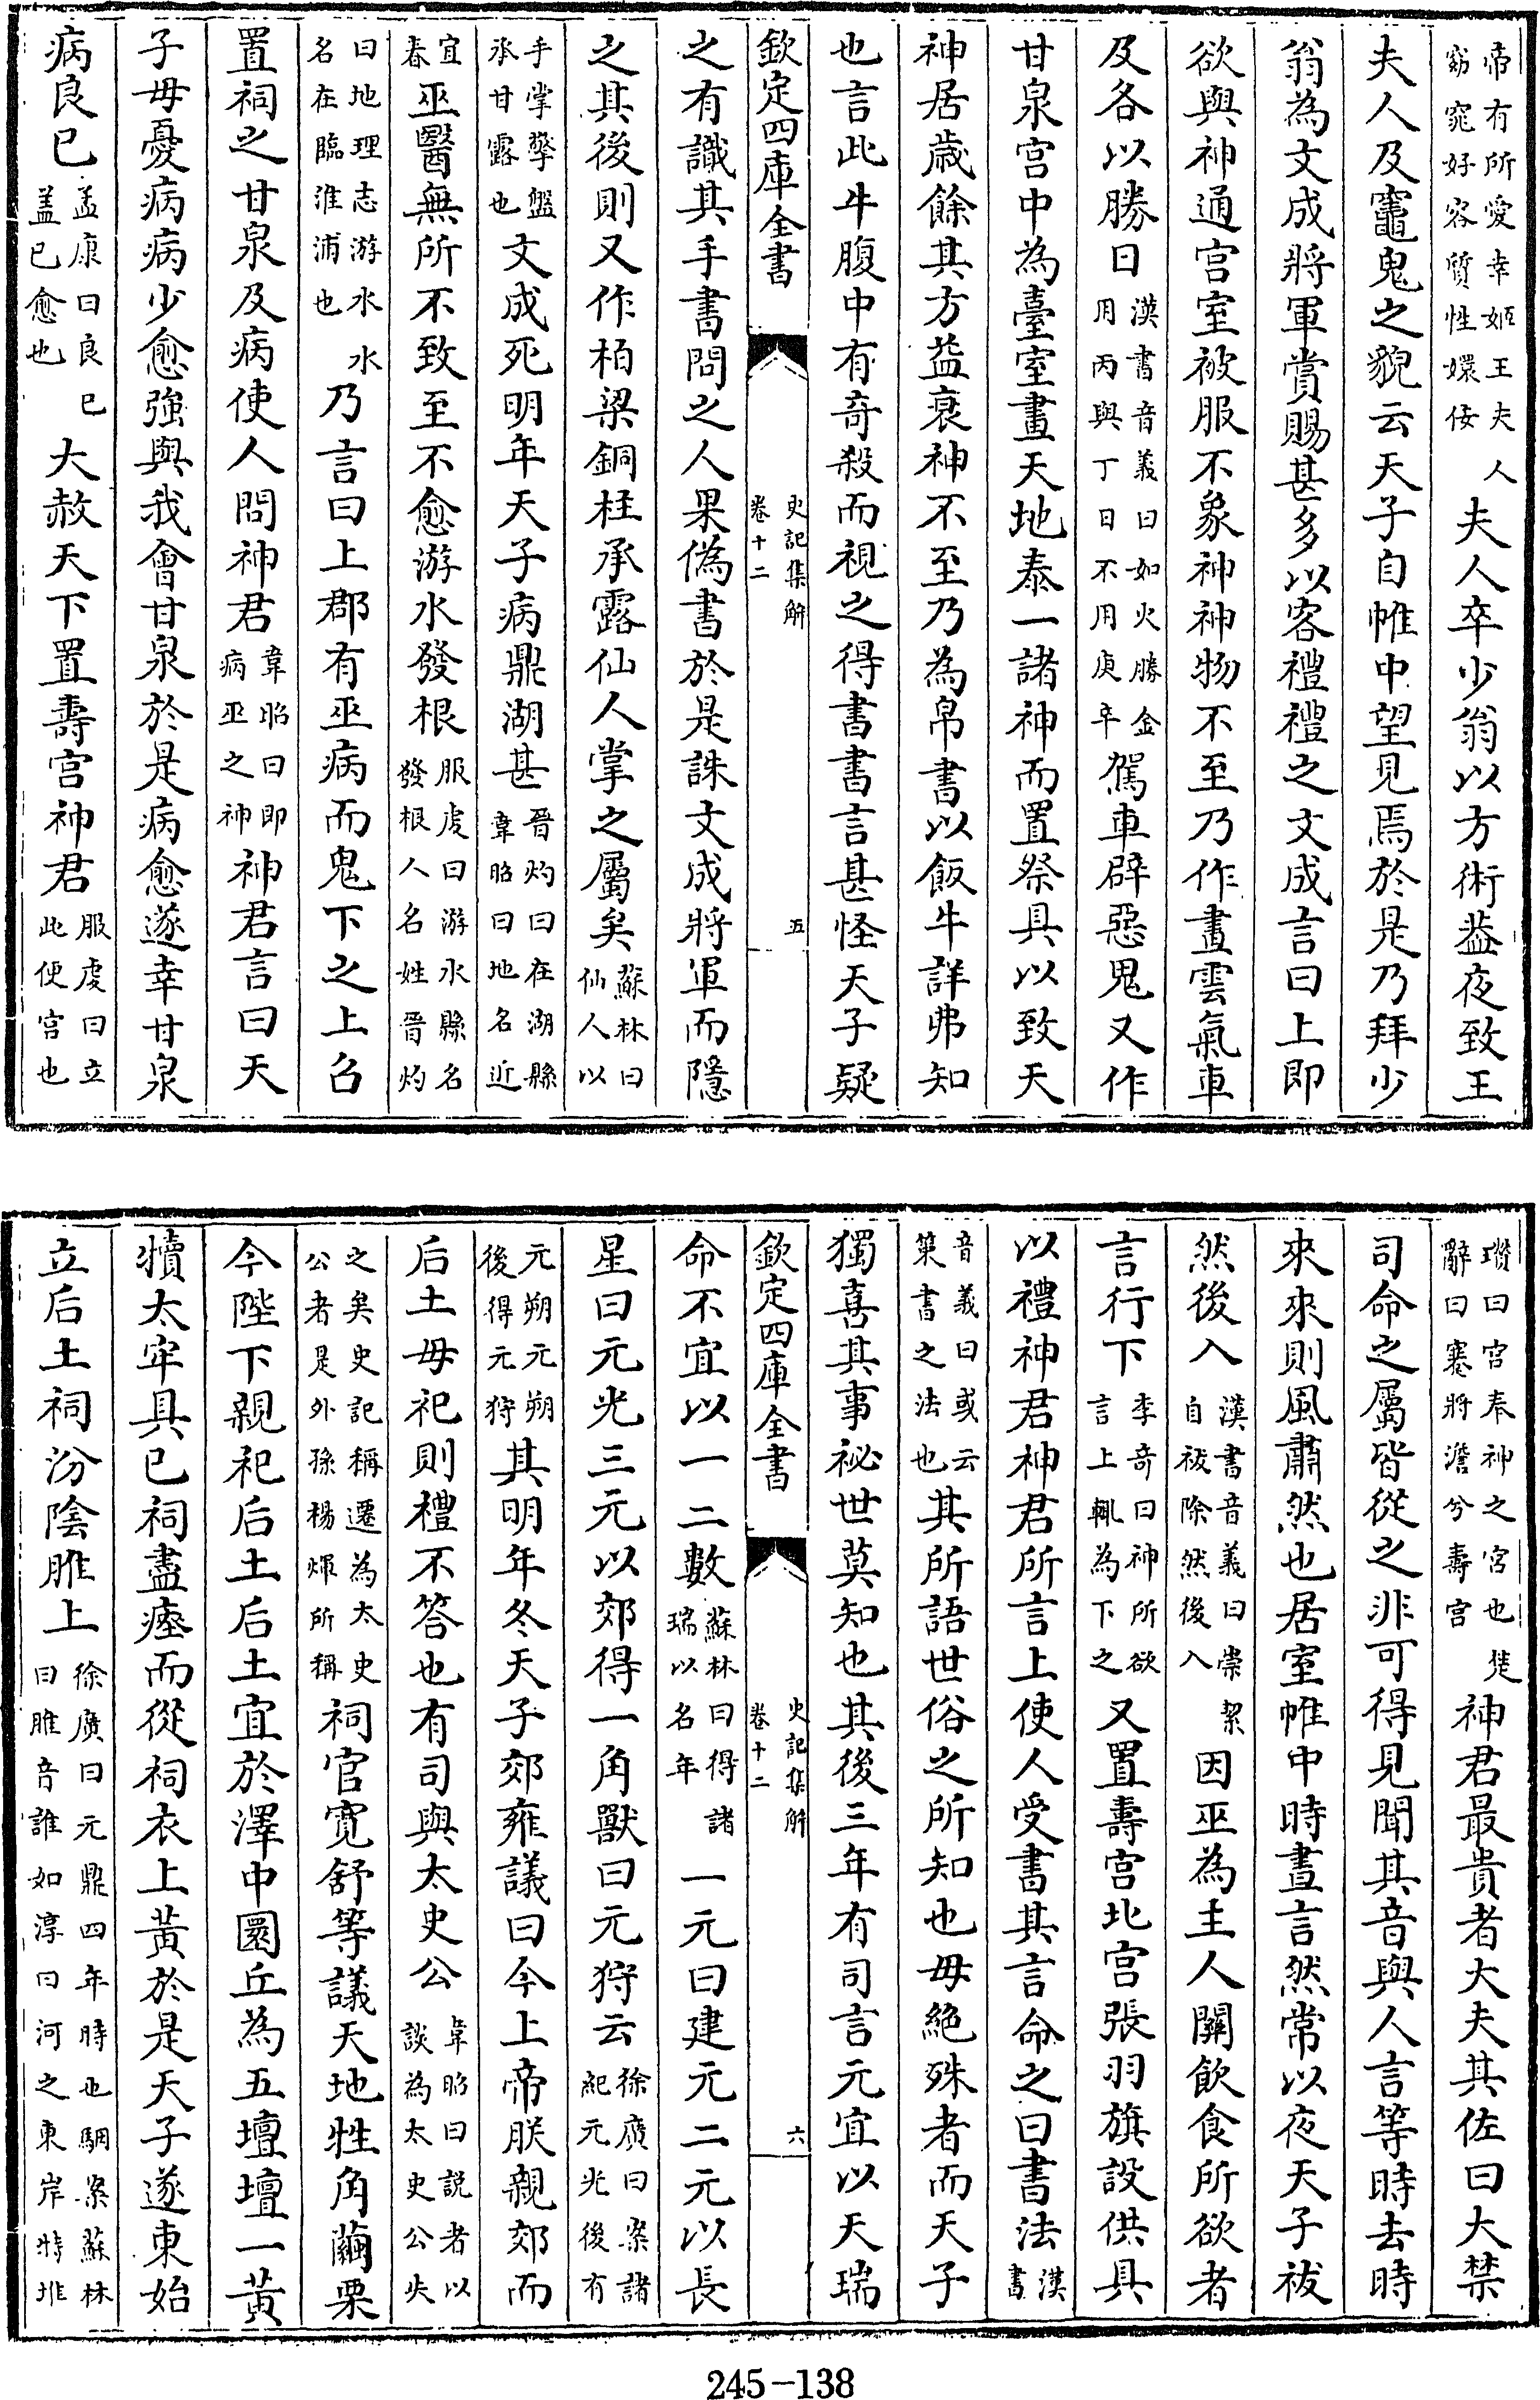 帝有所愛幸姬王夫人窈窕好容質性嬛佞夫人卒少翁以方術葢夜致王
夫人及竈鬼之貌云天子自帷中望見焉於是乃拜少
翁為文成將軍賞賜甚多以客禮禮之文成言曰上即
欲與神通宫室被服不象神神物不至乃作畫雲氣車
及各以勝日漢書音義曰如火勝金用丙與丁日不用庚辛駕車辟惡鬼又作
甘泉宫中為臺室畫天地泰一諸神而置祭具以致天
神居歳餘其方益衰神不至乃為帛書以飯牛詳弗知
也言此牛腹中有奇殺而視之得書書言甚怪天子疑
欽定四庫全書 史記集解 卷十二 五
之有識其手書問之人果偽書於是誅文成將軍而隱
之其後則又作柏梁銅柱承露仙人掌之屬矣蘇林曰仙人以
手掌擎盤承甘露也文成死明年天子病鼎湖甚晉灼曰在湖縣韋昭曰地名近
宜春巫醫無所不致至不愈游水發根服虔曰游水縣名發根人名姓晉灼
曰地理志游水水名在臨淮浦也乃言曰上郡有巫病而鬼下之上召
置祠之甘泉及病使人問神君韋昭曰即病巫之神神君言曰天
子毋憂病病少愈強與我會甘泉於是病愈遂幸甘泉
病良已孟康曰良已蓋已愈也大赦天下置壽宫神君服虔曰立此便宫也
瓚曰宫奉神之宫也楚辭曰蹇將澹兮壽宫神君最貴者大夫其佐曰大禁
司命之屬皆從之非可得見聞其音與人言等時去時
來來則風肅然也居室帷中時晝言然常以夜天子祓
然後入漢書音義曰崇絜自祓除然後入因巫為主人關飲食所欲者
言行下李奇曰神所欲言上輒為下之又置壽宫北宫張羽旗設供具
以禮神君神君所言上使人受書其言命之曰書法漢書
音義曰或云策書之法也其所語世俗之所知也毋絶殊者而天子
獨喜其事祕世莫知也其後三年有司言元宜以天瑞
欽定四庫全書 史記集解 卷十二 六
命不宜以一二數蘇林曰得諸瑞以名年一元曰建元二元以長
星曰元光三元以郊得一角獸曰元狩云徐廣曰案諸紀元光後有
元朔元朔後得元狩其明年冬天子郊雍議曰今上帝朕親郊而
后土毋祀則禮不答也有司與太史公韋昭曰説者以談為太史公失
之矣史記稱遷為太史公者是外孫楊煇所稱祠官寛舒等議天地牲角繭栗
今陛下親祀后土后土宜於澤中圜丘為五壇壇一黃
犢太牢具已祠盡瘞而從祠衣上黃於是天子遂東始
立后土祠汾陰脽上徐廣曰元鼎四年時也駰案蘇林曰脽音誰如淳曰河之東岸特堆
245-138